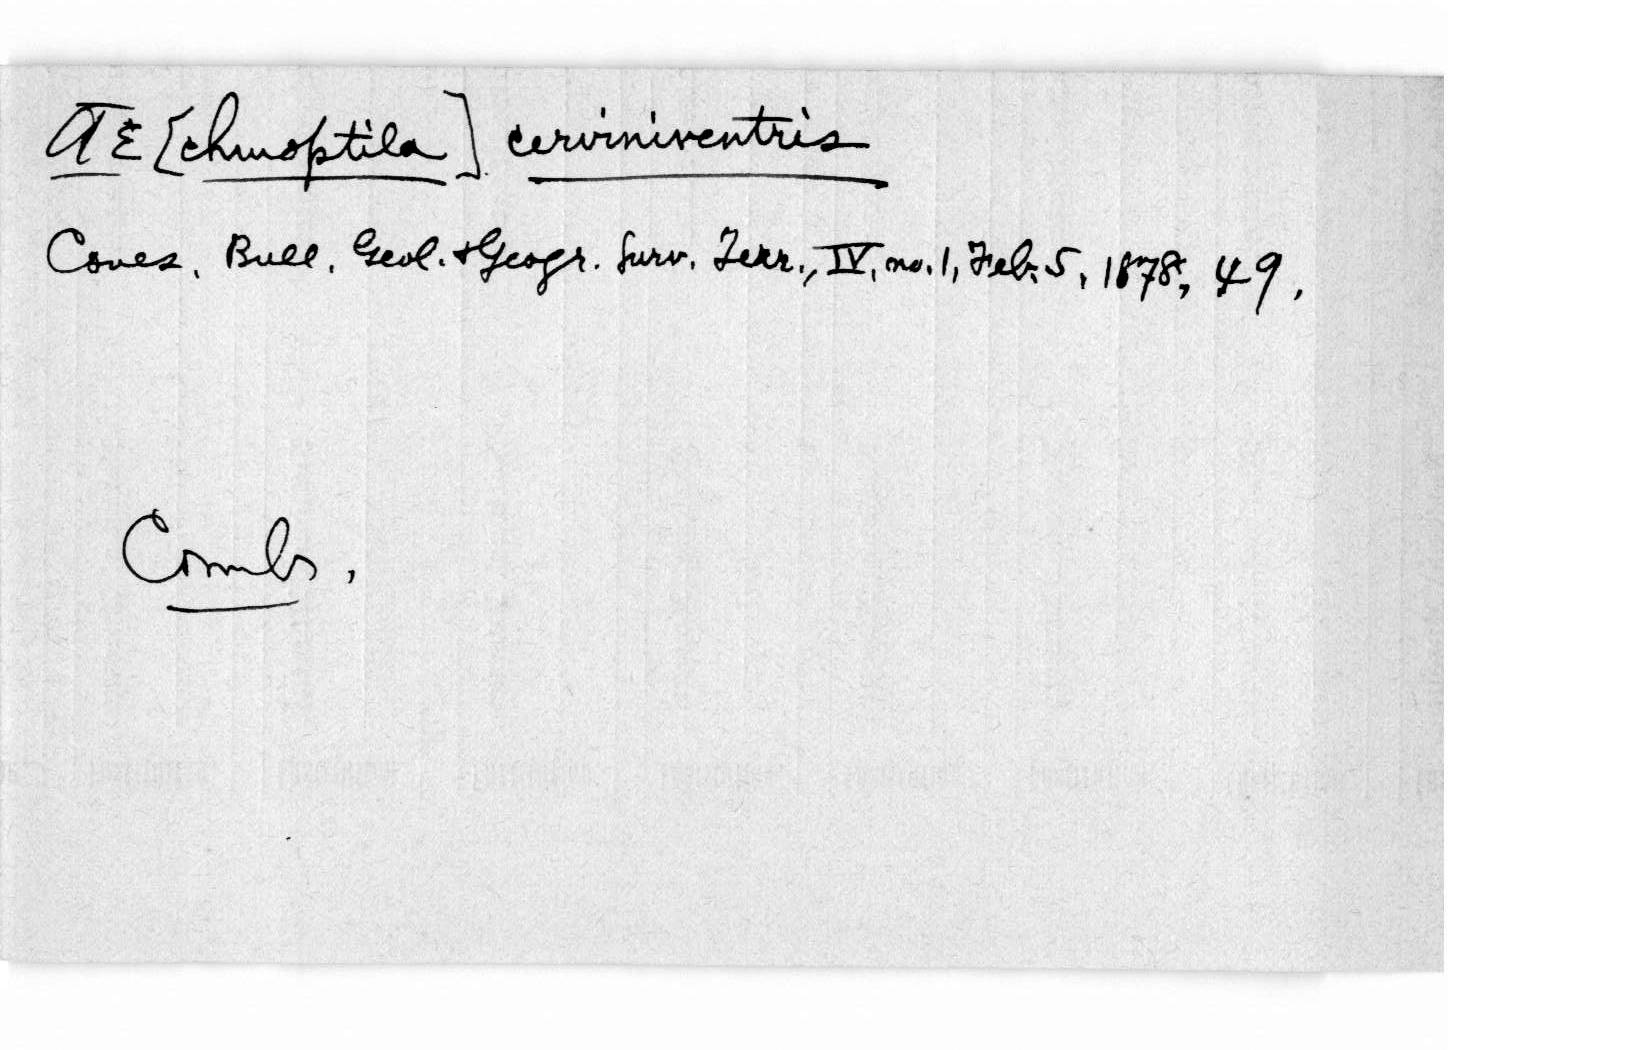 AE [chmoptila] cerviniventris
Coues, Bull. Geol. & Geogr. Surv. Terr., IV, no. 1, Feb. 5, 1878, 49.
Comb.